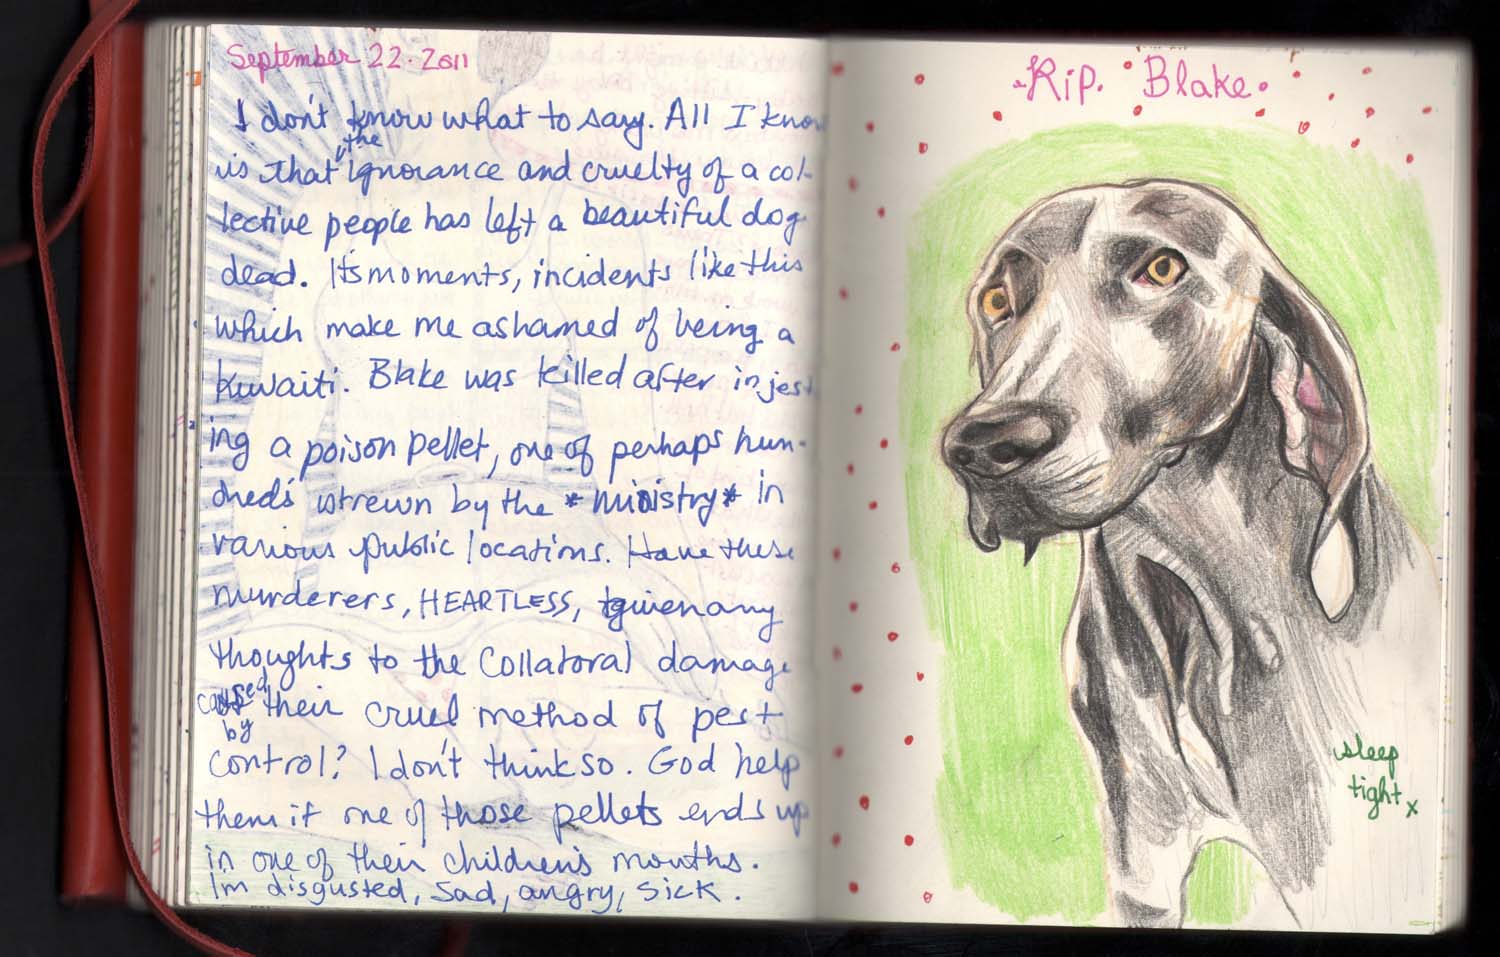 September 22·2011
I don't know what to say. All I know
the
is that ignorance and cruelty of a col-
lective people has left a beautiful dog
dead. Its moments, incidents like this
which make me ashamed of being a
Kuwaiti. Blake was killed after injest
ing a poison pellet, one of perhaps hun-
dreds strewn by the *ministry* in
various public locations. Have these
murderers, HEARTLESS, given any
thoughts to the collatoral damage
caused their cruel method of pest
by
control? I don't think so. God help
them if one of those pellets ends up
in one of their children's mouths.
I'm disgusted, sad, angry, sick.
·Rip. Blake·
sleep
tight x